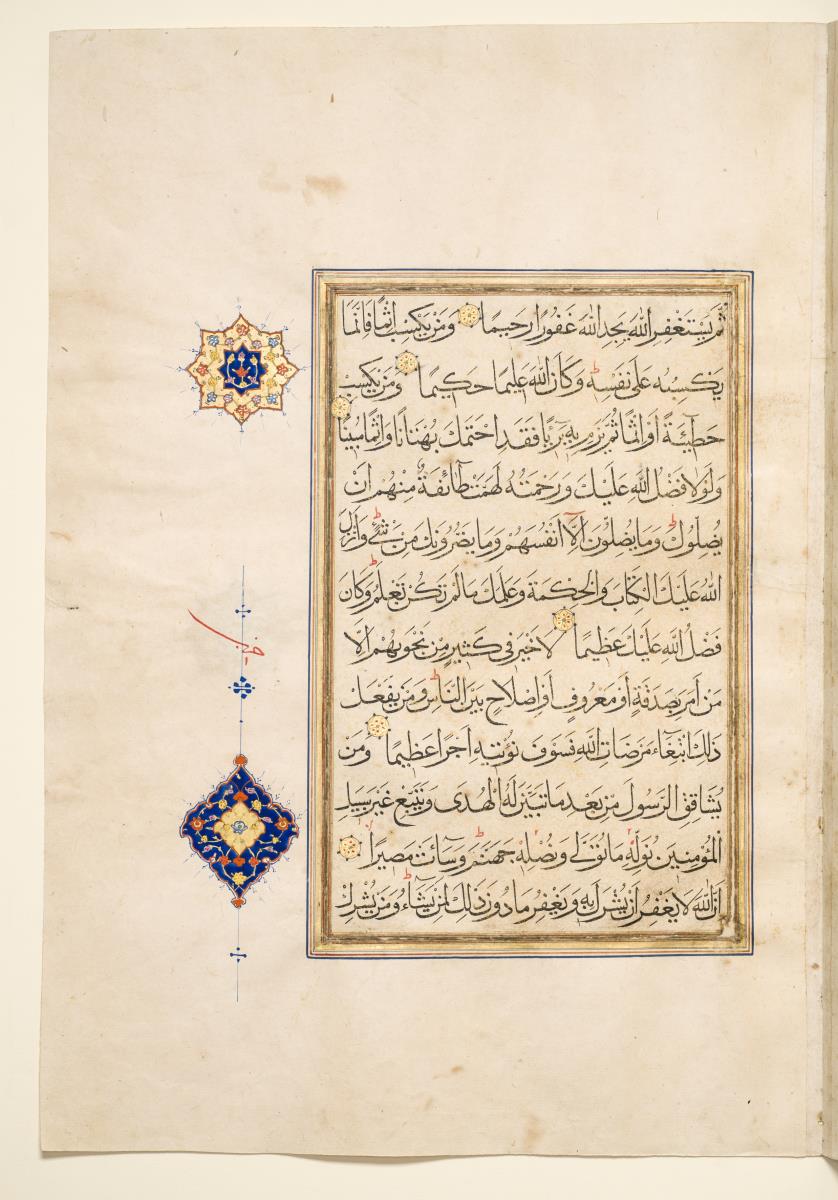 ثُمَّ يَسْتَغْفِرِ اللَّهَ يَجِدِ اللَّهَ غَفُورًا رَحِيمًا وَمَنْ يَكْسِبْ إِثْمًا فَإِنَّمَا
يَكْسِبُهُ عَلَى نَفْسِهِ وَكَانَ اللَّهُ عَلِيمًا حَكِيمًا وَمَنْ يَكْسِبْ
خَطِيئَةً أَوْ إِثْمًا ثُمَّ يَرْمِ بِهِ بَرِيئًا فَقَدِ احْتَمَلَ بُهْتَانًا وَإِثْمًا مُبِينًا
وَلَوْلَا فَضْلُ اللَّهِ عَلَيْكَ وَرَحْمَتُهُ لَهَمَّتْ طَائِفَةٌ مِنْهُمْ أَنْ
يُضِلُّوكَ وَمَا يُضِلُّونَ إِلَّا أَنْفُسَهُمْ وَمَا يَضُرُّونَكَ مِنْ شَيْءٍ وَأَنْزَلَ
اللَّهُ عَلَيْكَ الْكِتَابَ وَالْحِكْمَةَ وَعَلَّمَكَ مَا لَمْ تَكُنْ تَعْلَمُ وَكَانَ
فَضْلُ اللَّهِ عَلَيْكَ عَظِيمًا لَا خَيْرَ فِي كَثِيرٍ مِنْ نَجْوَيهُمْ إِلَّا
مَنْ أَمَرَ بِصَدَقَةٍ أَوْ مَعْرُوفٍ أَوْ إِصْلَاحٍ بَيْنَ النَّاسِ وَمَنْ يَفْعَلْ
ذَلِكَ ابْتِغَاءَ مَرْضَاتِ اللَّهِ فَسَوْفَ نُؤْتِيهِ أَجْرًا عَظِيمًا وَمَنْ
يُشَاقِقِ الرَّسُولَ مِنْ بَعْدِ مَا تَبَيَّنَ لَهُ الْهُدَى وَيَتَّبِعْ غَيْرَ سَبِيلِ
الْمُؤْمِنِينَ نُوَلِّهِ مَا تَوَلَّى وَنُصْلِهِ جَهَنَّمَ وَسَاءَتْ مَصِيرًا
إِنَّ اللَّهَ لَا يَغْفِرُ أَنْ يُشْرَكَ بِهِ وَيَغْفِرُ مَا دُونَ ذَلِكَ لِمَنْ يَشَاءُ وَمَنْ يُشْرِكْ